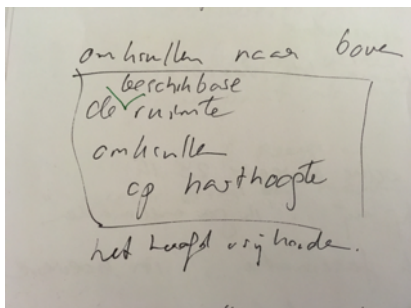 omhullen naar boven
beschikbare
de ruimte
omhullen
op harthoogte
het hoofd vrij houden.